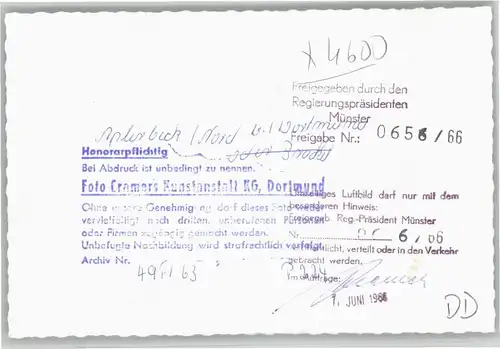 x 4600
Freigegeben durch den
Regierungspräsidenten
Münster
Freigabe Nr.: 0656/66
Aplerbeck / Nord b./ Dortmund
Honorarpflichtig
Bei Abdruck ist unbedingt zu nennen:
Foto Cramers Kunstanstalt KG, Dortmund
Ohne unsere Genehmigung darf dieses Foto weder
vervielfältigt noch dritten, unberufenen Personen
oder Firmen zugängig gemacht werden.
Unbefugte Nachbildung wird strafrechtlich verfolgt.
Archiv Nr.
Luftbild darf nur mit dem
besonderen Hinweis:
Freigegeb. Reg.-Präsident Münster
Nr. 6/66
veröffentlicht, verteilt oder in den Verkehr
gebracht werden.
Im Auftrage:
P 224
1. JUNI 1966
DD